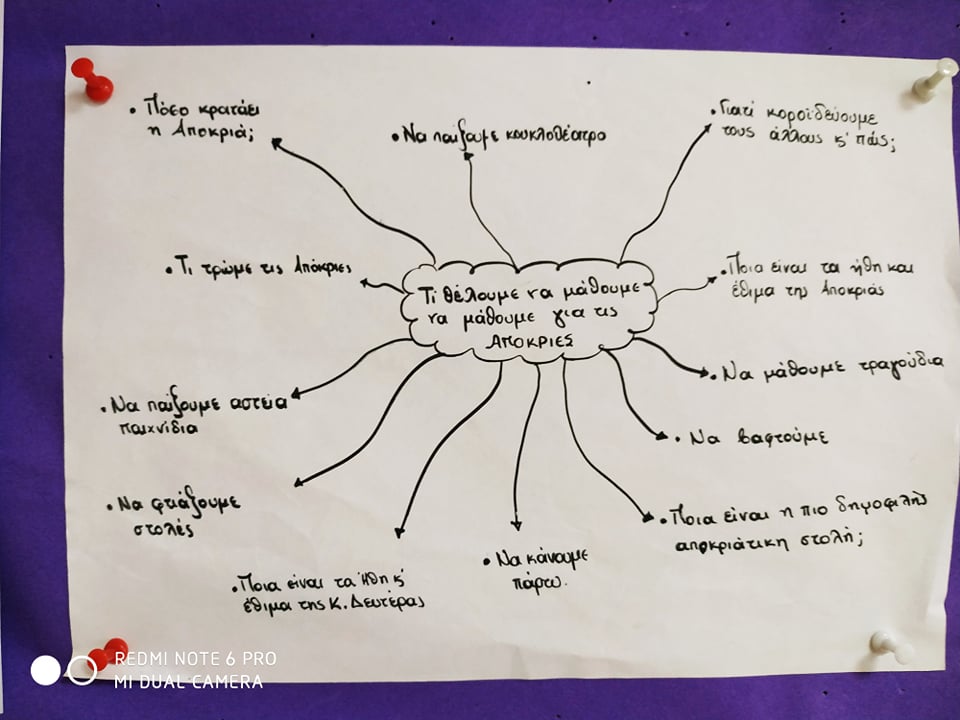 • Πόσο κρατάει
η Αποκριά;
• Να παίξουμε κουκλοθέατρο
• Γιατί κοροϊδεύουμε
τους άλλους κ' πώς;
• Τι τρώμε τις Απόκριες
• Ποια είναι τα ήθη και
έθιμα της Αποκριάς
Τί θέλουμε να μάθουμε
να μάθουμε για τις
ΑΠΟΚΡΙΕΣ
• Να μάθουμε τραγούδια
• Να παίξουμε αστεία
παιχνίδια
• Να βαφτούμε
• Να φτιάξουμε
στολές
• Ποια είναι η πιο δημοφιλής
αποκριάτικη στολή;
• Να κάνουμε
πάρτυ.
• Ποια είναι τα Ήθη κ'
έθιμα της Κ. Δευτέρας
REDMI NOTE 6 PRO
MI DUAL CAMERA